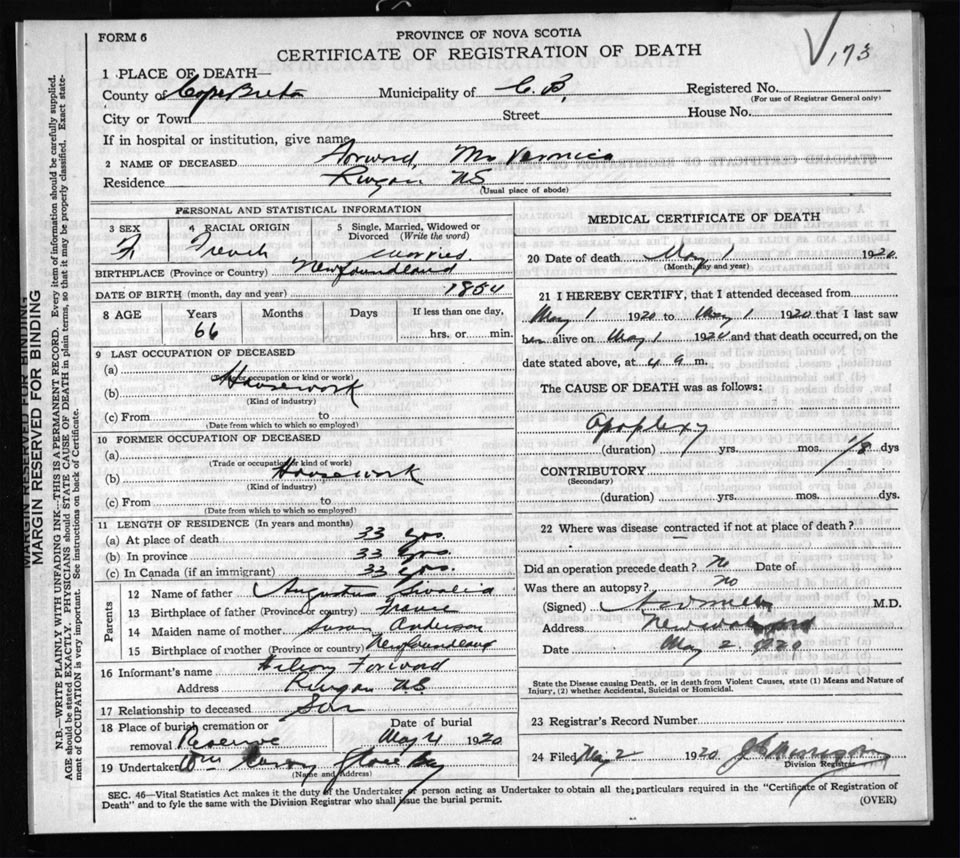 FORM 6
PROVINCE OF NOVA SCOTIA
CERTIFICATE OF REGISTRATION OF DEATH
173
1 PLACE OF DEATH—
County of Cape Breton Municipality of C. B. Registered No.
(For use of Registrar General only)
City or Town Street House No.
If in hospital or institution, give name
2 NAME OF DECEASED Forward, Mrs
Residence N S
(Usual place of abode)
PERSONAL AND STATISTICAL INFORMATION
3 SEX 4 RACIAL ORIGIN 5 Single, Married, Widowed or
Divorced (Write the word)
F French Married
BIRTHPLACE (Province or Country) Newfoundland
DATE OF BIRTH (month, day and year) 1854
8 AGE Years Months Days If less than one day,
66 hrs. or min.
9 LAST OCCUPATION OF DECEASED
(a)
(Trade or occupation or kind of work)
(b) Housework
(Kind of industry)
(c) From to
(Date from which to which so employed)
10 FORMER OCCUPATION OF DECEASED
(Trade or occupation or kind of work)
(b) Housework
(Kind of industry)
(c) From to
(Date from which to which so employed)
11 LENGTH OF RESIDENCE (In years and months)
(a) At place of death 33 yrs.
(b) In province 33 yrs.
(c) In Canada (if an immigrant) 33 yrs.
Parents
12 Name of father Augustus
13 Birthplace of father (Province or country) France
14 Maiden name of mother Susan Anderson
15 Birthplace of mother (Province or country) Newfoundland
16 Informant's name Forward
Address N S
17 Relationship to deceased Son
18 Place of burial, cremation or Date of burial
removal Reserve May 4 1920
19 Undertaker Wm Glace Bay
(Name and Address)
MEDICAL CERTIFICATE OF DEATH
20 Date of death May 1 1920
(Month, day and year)
21 I HEREBY CERTIFY, that I attended deceased from
May 1 1920 to May 1 1920 that I last saw
alive on May 1 1920 and that death occurred, on the
date stated above, at 4 a m.
The CAUSE OF DEATH was as follows:
Apoplexy
(duration) yrs. mos. 1/8 dys
CONTRIBUTORY
(Secondary)
(duration) yrs. mos. dys.
22 Where was disease contracted if not at place of death?
Did an operation precede death? No Date of
Was there an autopsy? No
(Signed) M.D.
Address New Waterford
Date May 2 1920
State the Disease causing Death, or in death from Violent Causes, state (1) Means and Nature of
Injury, (2) whether Accidental, Suicidal or Homicidal.
23 Registrar's Record Number
24 Filed May 2 1920
Division Registrar
SEC. 46—Vital Statistics Act makes it the duty of the Undertaker or person acting as Undertaker to obtain all the particulars required in the "Certificate of Registration of
Death" and to fyle the same with the Division Registrar who shall issue the burial permit.
(OVER)
MARGIN RESERVED FOR BINDING
MARGIN RESERVED FOR BINDING
N.B.—WRITE PLAINLY WITH UNFADING INK—THIS IS A PERMANENT RECORD. Every item of information should be carefully supplied.
AGE should be stated EXACTLY. PHYSICIANS should STATE CAUSE OF DEATH in plain terms, so that it may be properly classified. Exact state-
ment of OCCUPATION is very important. See instructions on back of Certificate.